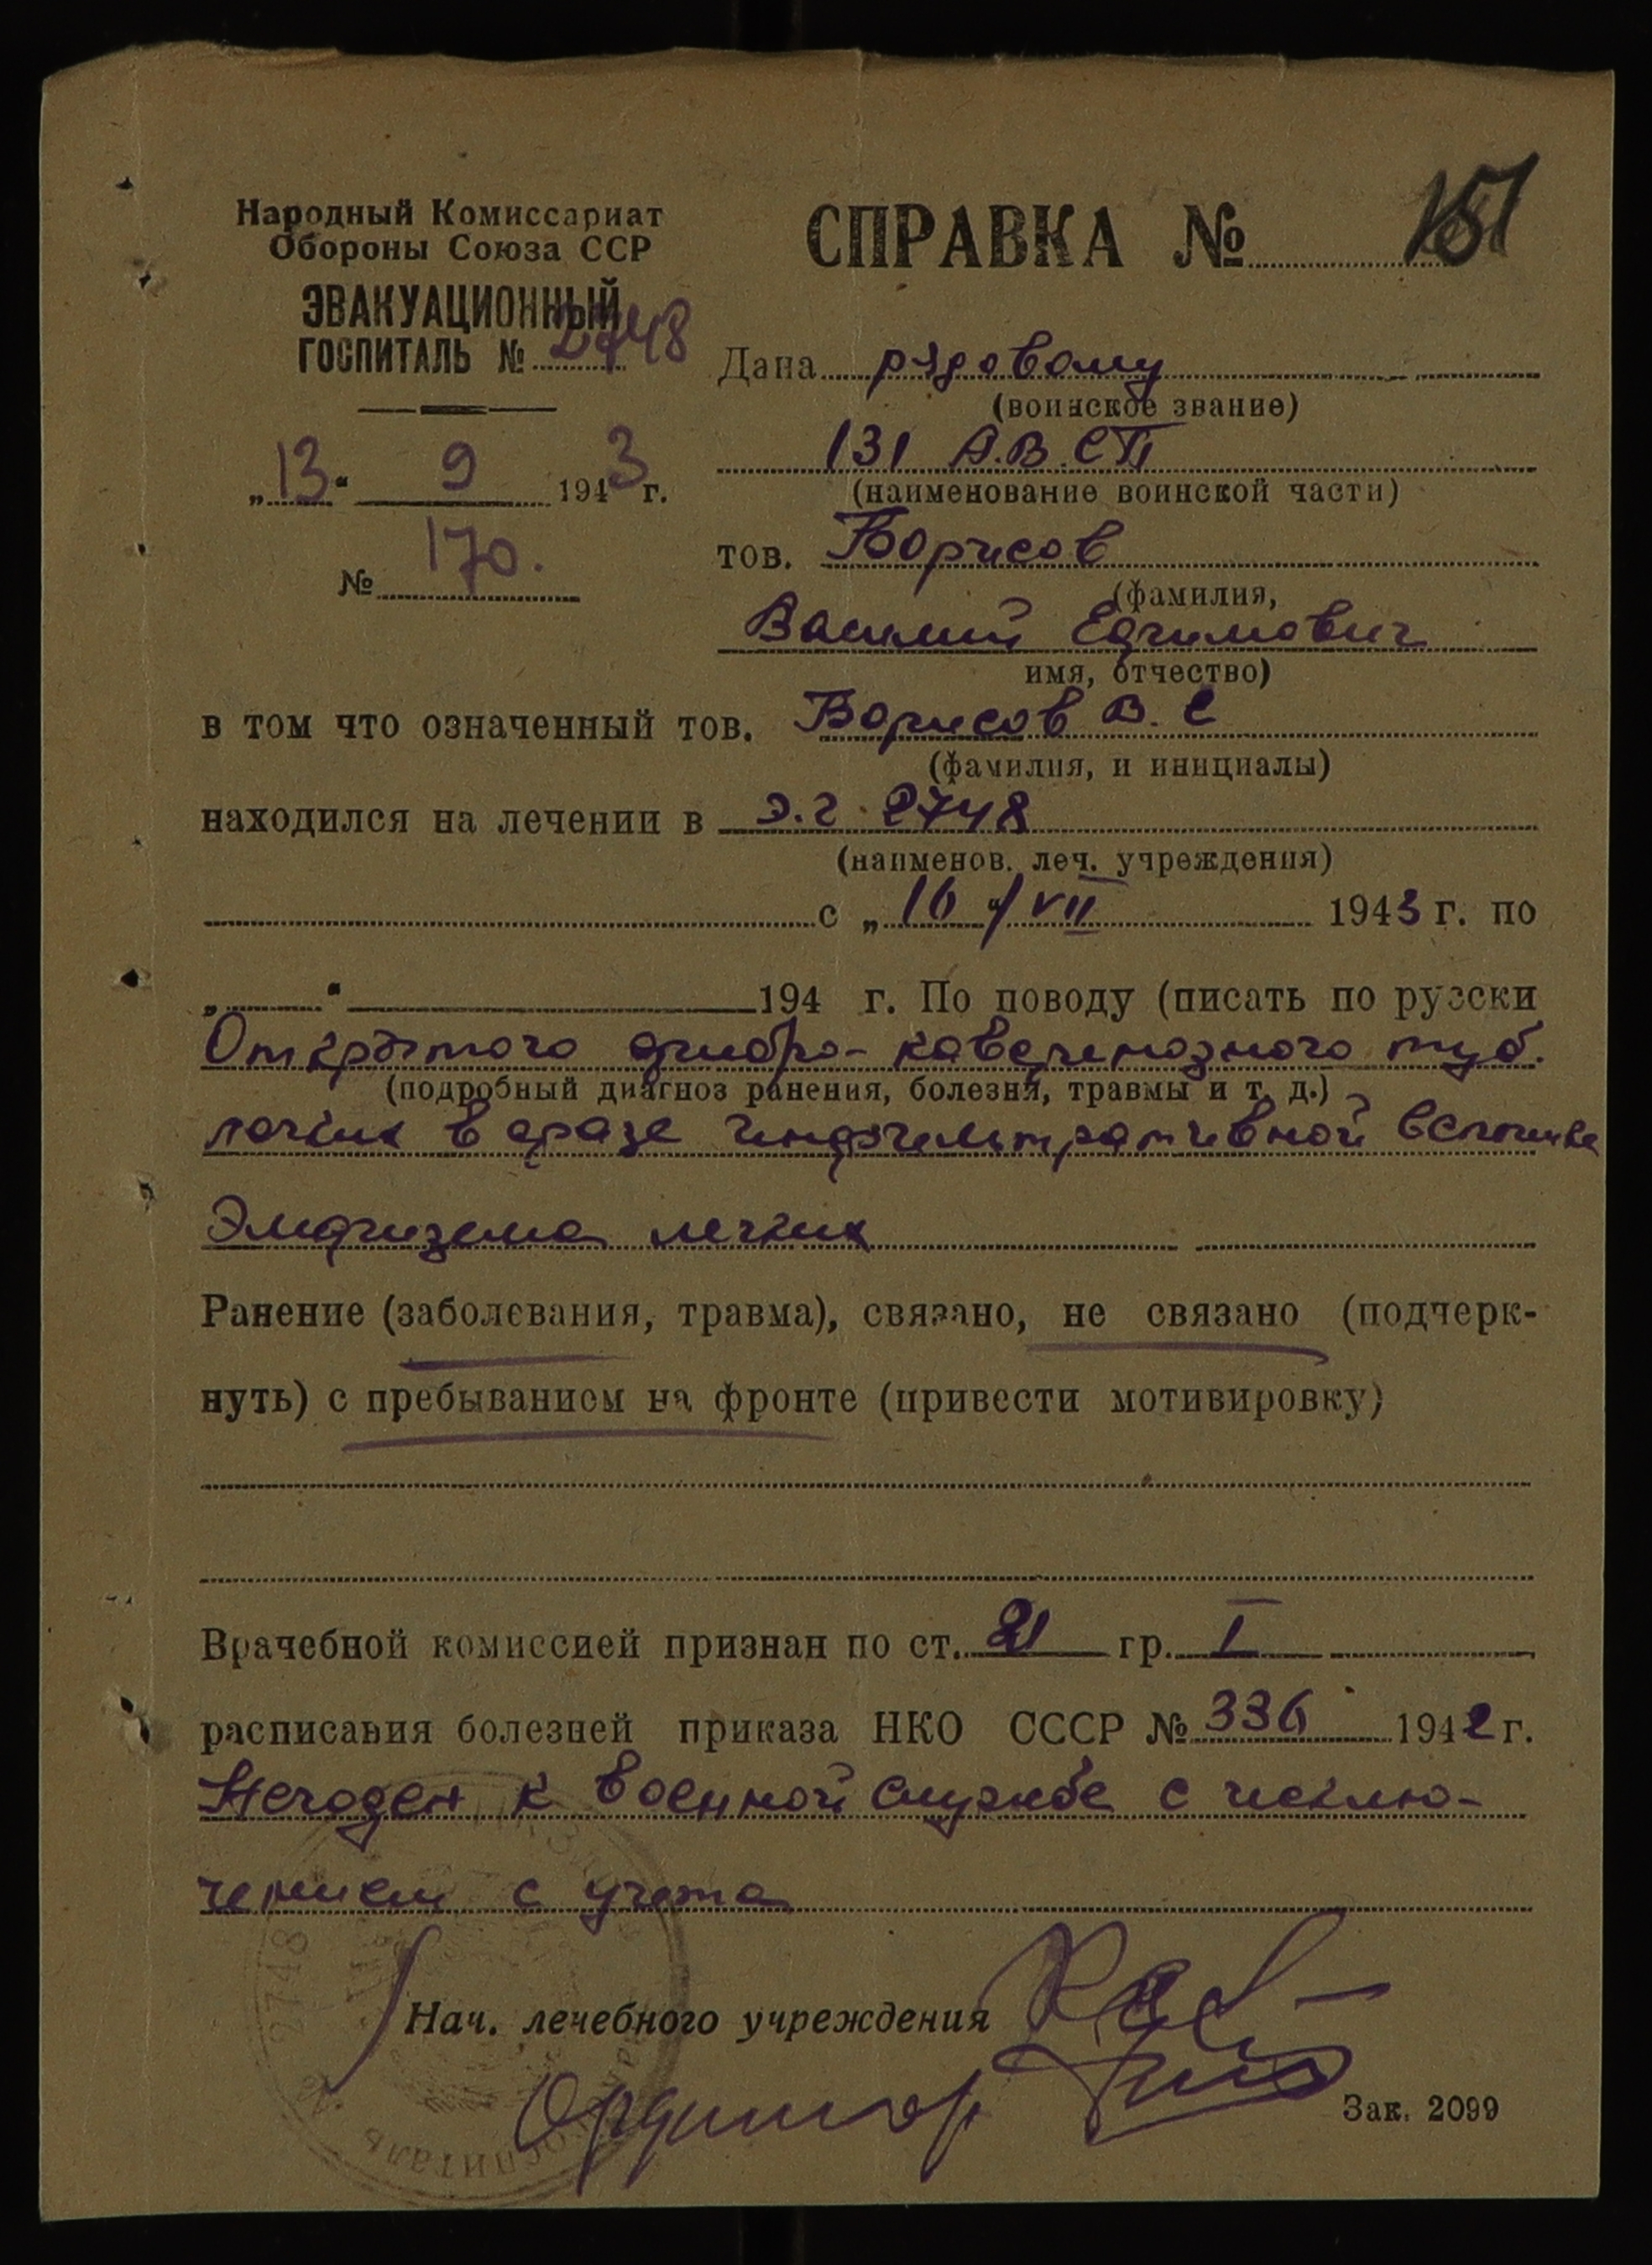 Народный Комиссариат
Обороны Союза ССР
ЭВАКУАЦИОННЫЙ
ГОСПИТАЛЬ № 2748
„13“ 9 1943 г.
№ 170.
СПРАВКА № 151
Дана рядовому
(воинское звание)
131 А.В.СП
(наименование воинской части)
тов. Борисов
(фамилия,
Василий Ефимович
имя, отчество)
в том что означенный тов. Борисов В. Е
(фамилия, и инициалы)
находился на лечении в э.г. 2748
(наименов. леч. учреждения)
с „16“/VII 1943 г. по
„ “ 194 г. По поводу (писать по русски
Открытого фибро-кавернозного туб.
(подробный диагноз ранения, болезни, травмы и т. д.)
легких в фазе инфильтративной вспышке
Эмфизема легких
Ранение (заболевания, травма), связано, не связано (подчерк-
нуть) с пребыванием на фронте (привести мотивировку)
Врачебной комиссией признан по ст. 21 гр. I
расписания болезней приказа НКО СССР № 336 1942 г.
Негоден к военной службе с исклю-
чением с учета
Нач. лечебного учреждения
Ординатор
Зак. 2099
2748
госпиталь